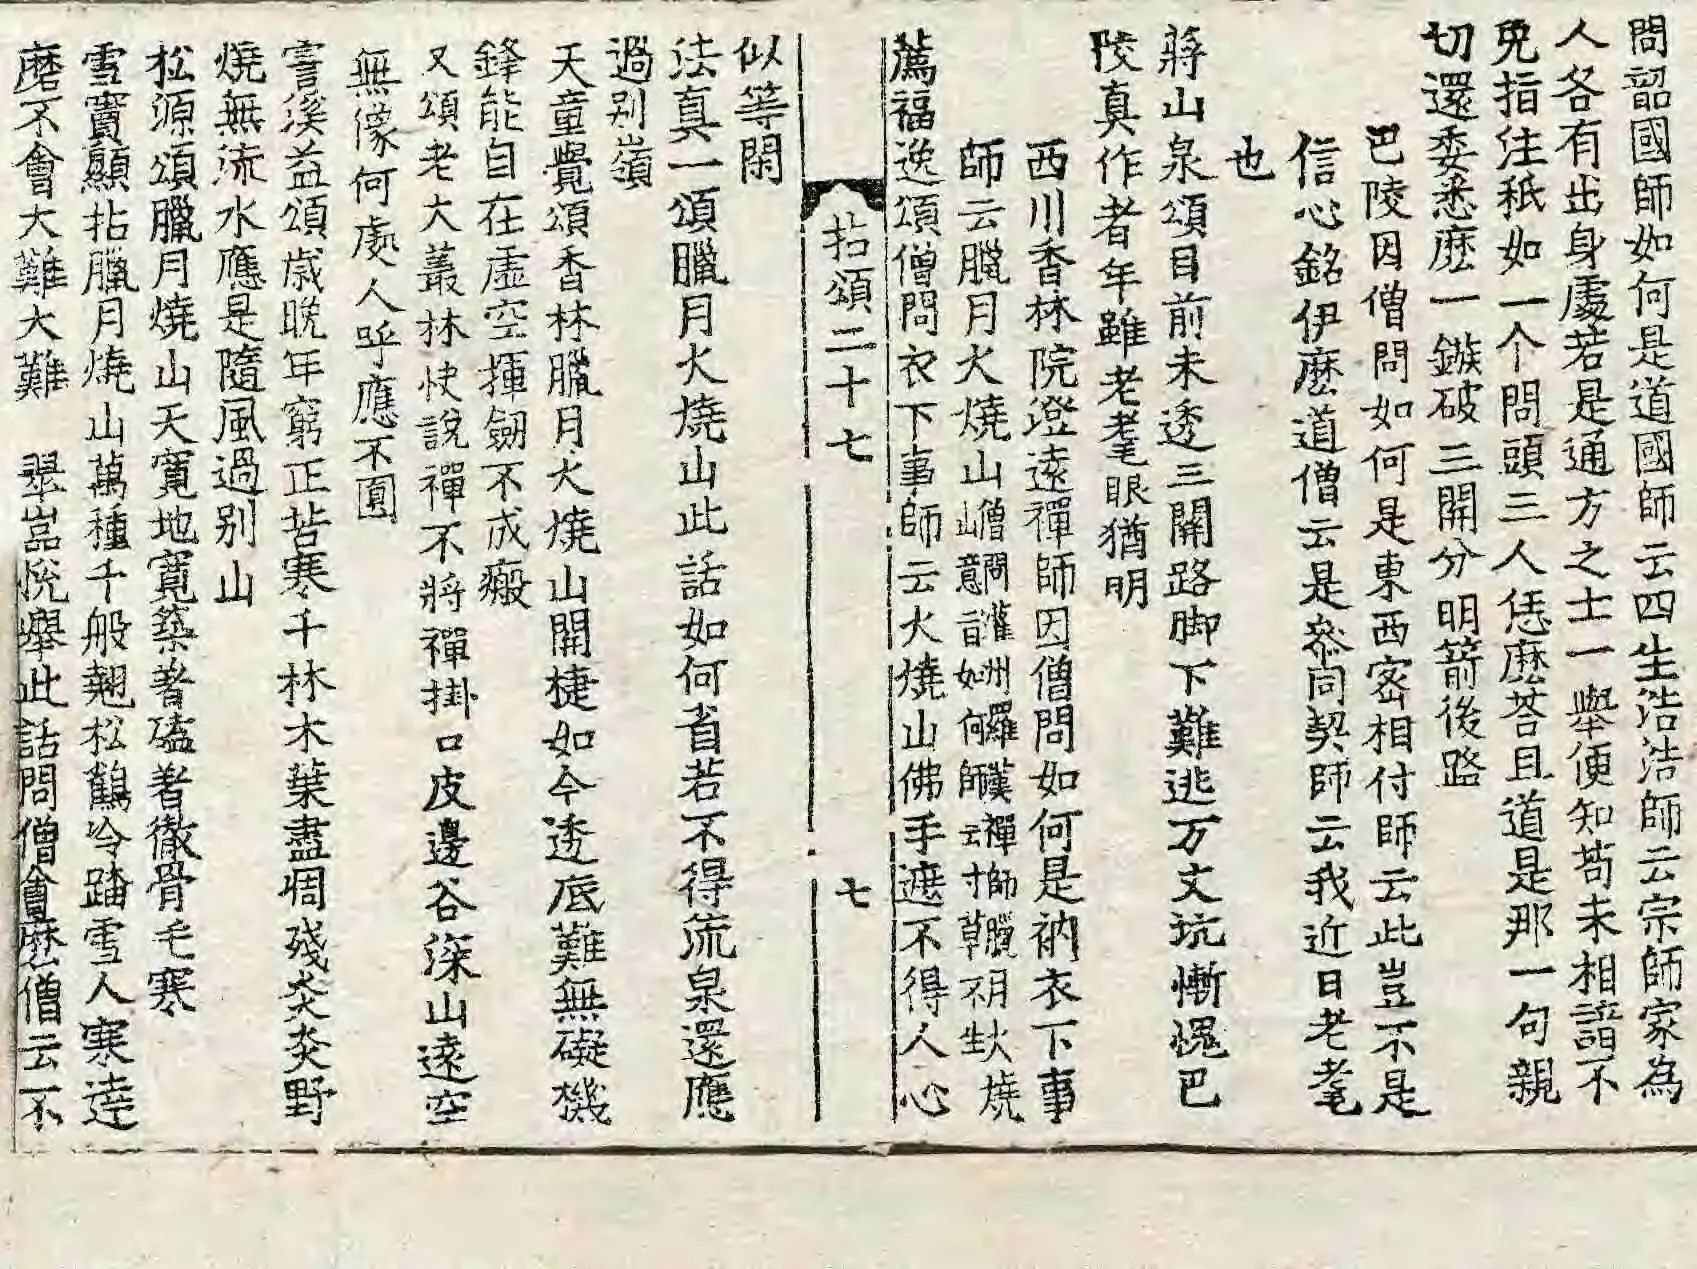 問韶國師如何是道國師云四生浩浩師云宗師家為
人各有出身處若是通方之士一舉便知苟未相諳不
免指注秖如一个問頭三人恁麽荅且道是那一句親
切還委悉麽一鏃破三開分明箭後路
巴陵因僧問如何是東西密相付師云此豈不是
信心銘伊麽道僧云是叅同契師云我近日老耄
也
蔣山泉頌目前未透三關路脚下難逃万丈坑慚愧巴
陵真作者年雖老耄眼猶明
西川香林院澄遠禪師因僧問如何是衲衣下事
師云臘月火燒山僧問灌州羅漢禪師臘月火燒山意旨如何師云寸草不生
薦福逸頌僧問衣下事師云火燒山佛手遮不得人心
拈頌二十七 七
似等閑
法真一頌臘月火燒山此話如何省若不得流泉還應
過别嶺
天童覺頌香林臘月火燒山關捷如今透底難無礙機
鋒能自在虛空揮劒不成瘢
又頌老大叢林快說禪不將禪掛口皮邊谷深山遠空
無像何處人呼應不圓
霅溪益頌歲晚年窮正苦寒千林木葉盡凋殘炎炎野
燒無流水應是隨風過别山
松源頌臘月燒山天寬地寬築著磕著徹骨毛寒
雪竇顯拈臘月燒山萬種千般翹松鶴冷踏雪人寒達
磨不會大難大難 翠嵓悅舉此話問僧會麽僧云不